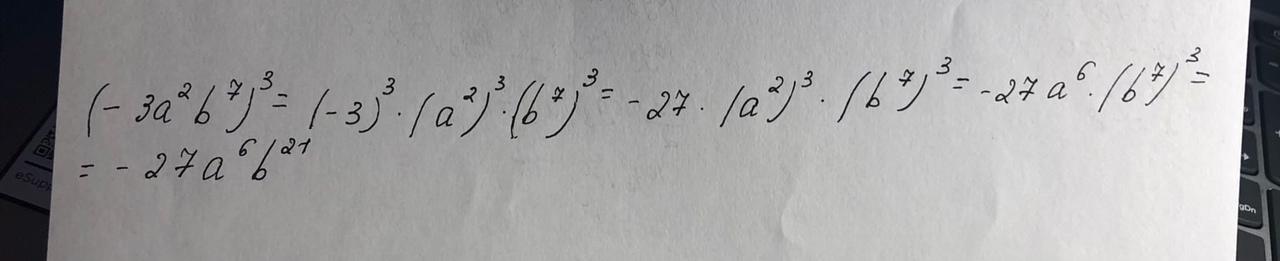 (-3a²b⁷)³ = (-3)³ · (a²)³ · (b⁷)³ = -27 · (a²)³ · (b⁷)³ = -27a⁶ · (b⁷)³ =
= -27a⁶b²¹
eSupp
gDn